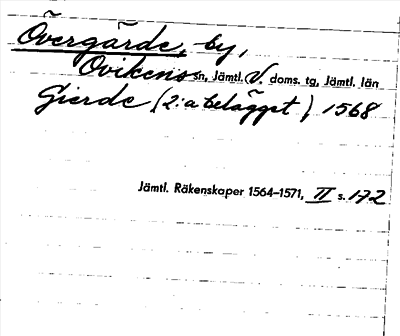 Övergärde, by,
Ovikens sn, Jämtl. V. doms. tg, Jämtl. län
Gierde (2:a belägget) 1568
Jämtl. Räkenskaper 1564–1571, II s. 172